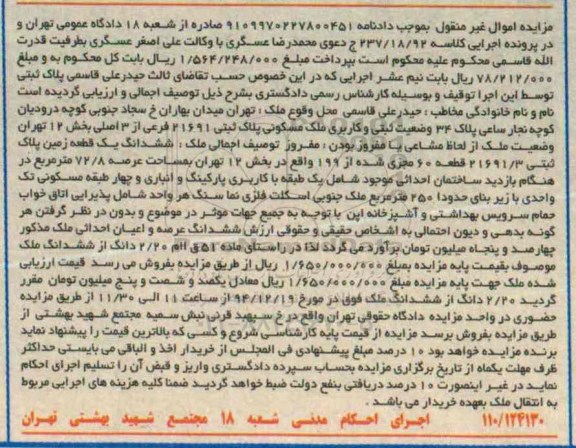 مزایده اموال غیر منقول بموجب دادنامه ۹۱۰۹۹۷۰۲۲۷۸۰۰۴۵۱ صادره از شعبه ۱۸ دادگاه عمومی تهران و
در پرونده اجرایی کلاسه ۲۳۷/۱۸/۹۲ ج دعوی محمدرضا عسگری با وکالت علی اصغر عسگری بطرفیت قدرت
الله قاسمی محکوم علیه محکوم است بپرداخت مبلغ ۱/۵۶۴/۲۴۸/۰۰۰ ریال بابت کل محکوم به و مبلغ
۷۸/۲۱۲/۰۰۰ ریال بابت نیم عشر اجرایی که در این خصوص حسب تقاضای ثالث حیدرعلی قاسمی پلاک ثبتی
توسط این اجرا توقیف و بوسیله کارشناس رسمی دادگستری بشرح ذیل توصیف اجمالی و ارزیابی گردیده است
نام و نام خانوادگی مخاطب : حیدرعلی قاسمی محل وقوع ملک : تهران میدان بهاران خ سجاد جنوبی کوچه درودیان
کوچه نجار ساعی پلاک ۳۲ وضعیت ثبتی و کاربری ملک مسکونی پلاک ثبتی ۲۱۶۹۱ فرعی از ۳ اصلی بخش ۱۲ تهران
وضعیت ملک از لحاظ مشاعی یا مفروز بودن : مفروز توصیف اجمالی ملک : ششدانگ یک قطعه زمین پلاک
ثبتی ۲۱۶۹۱/۳ قطعه ۶۰ مجزی شده از ۱۹۹ واقع در بخش ۱۲ تهران بمساحت عرصه ۷۲/۸ مترمربع در
هنگام بازدید ساختمان احداثی موجود شامل یک طبقه با کاربری پارکینگ و انباری و چهار طبقه مسکونی تک
واحدی با زیر بنای حدودا ۲۵۰ مترمربع ملک جنوبی اسکلت فلزی نما سنگ هر واحد شامل پذیرایی اتاق خواب
حمام سرویس بهداشتی و آشپزخانه اپن با توجه به جمیع جهات موثر در موضوع و بدون در نظر گرفتن هر
گونه بدهی و دیون احتمالی به اشخاص حقیقی و حقوقی ارزش ششدانگ عرصه و اعیان احداثی ملک مذکور
چهارصد و پنجاه میلیون تومان برآورد می گردد لذا در راستای ماده ۵۱ ق اام ۲/۲۰ دانگ از ششدانگ ملک
موصوف بقیمت پایه مزایده بمبلغ ۱/۶۵۰/۰۰۰/۰۰۰ ریال از طریق مزایده بفروش می رسد قیمت ارزیابی
شده ملک جهت پایه مزایده مبلغ ۱/۶۵۰/۰۰۰/۰۰۰ ریال معادل یکصد و شصت و پنج میلیون تومان مقرر
گردید ۲/۲۰ دانگ از ششدانگ ملک فوق در مورخ ۹۴/۱۲/۱۹ از ساعت ۱۱ الی ۱۱/۳۰ از طریق مزایده
حضوری در واحد مزایده دادگاه حقوقی تهران واقع در خ سپهبد قرنی نبش سمیه مجتمع شهید بهشتی از
طریق مزایده بفروش برسد مزایده از قیمت پایه کارشناسی شروع و کسی که بالاترین قیمت را پیشنهاد نماید
برنده مزایده خواهد بود ۱۰ درصد مبلغ پیشنهادی فی المجلس از خریدار اخذ و الباقی می بایستی حداکثر
ظرف مهلت یکماه از تاریخ برگزاری مزایده بحساب سپرده دادگستری واریز و قبض آن را تسلیم اجرای احکام
نماید در غیر اینصورت ۱۰ درصد دریافتی بنفع دولت ضبط خواهد گردید ضمنا کلیه هزینه های اجرایی مربوط
به انتقال ملک بعهده خریدار می باشد .
۱۱۰/۱۲۴۱۳۰ اجرای احکام مدنی شعبه ۱۸ مجتمع شهید بهشتی تهران